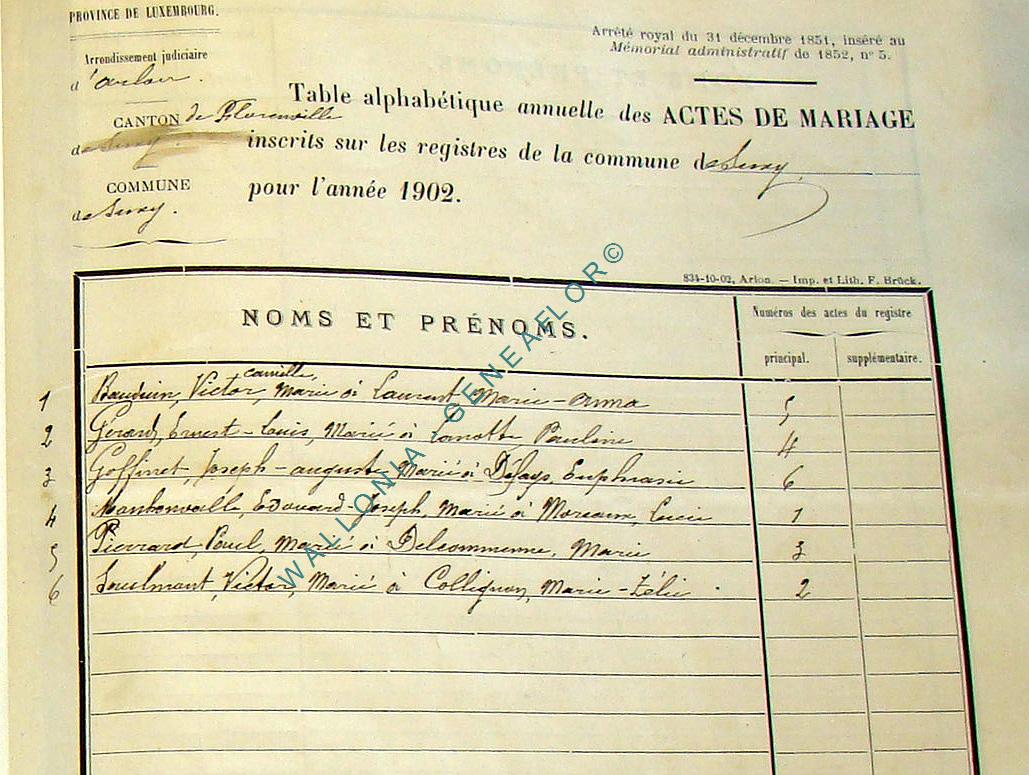 PROVINCE DE LUXEMBOURG.
Arrondissement judiciaire
d'Arlon.
CANTON de Florenville
de Suxy.
COMMUNE
de Suxy.
Arrêté royal du 31 décembre 1851, inséré au
Mémorial administratif de 1852, n° 5.
Table alphabétique annuelle des ACTES DE MARIAGE
inscrits sur les registres de la commune de Suxy,
pour l'année 1902.
834-10-02, Arlon. — Imp. et Lith. F. Brück.
NOMS ET PRÉNOMS.
Numéros des actes du registre
principal. supplémentaire.
camille,
1 Bauduin, Victor, Marié à Laurent Marie-Anna 5
2 Gérard, Ernest-Louis, Marié à Lamotte Pauline 4
3 Goffinet, Joseph-auguste Marié à Defays Euphrasie 6
4 Edouard-Joseph, Marié à Lucie 1
5 Pierrard, Paul, Marié à Delcommenne, Marie 3
6 Victor, Marié à Collignon, Marie-Zélie 2
WALLONIA GENEAFLOR©